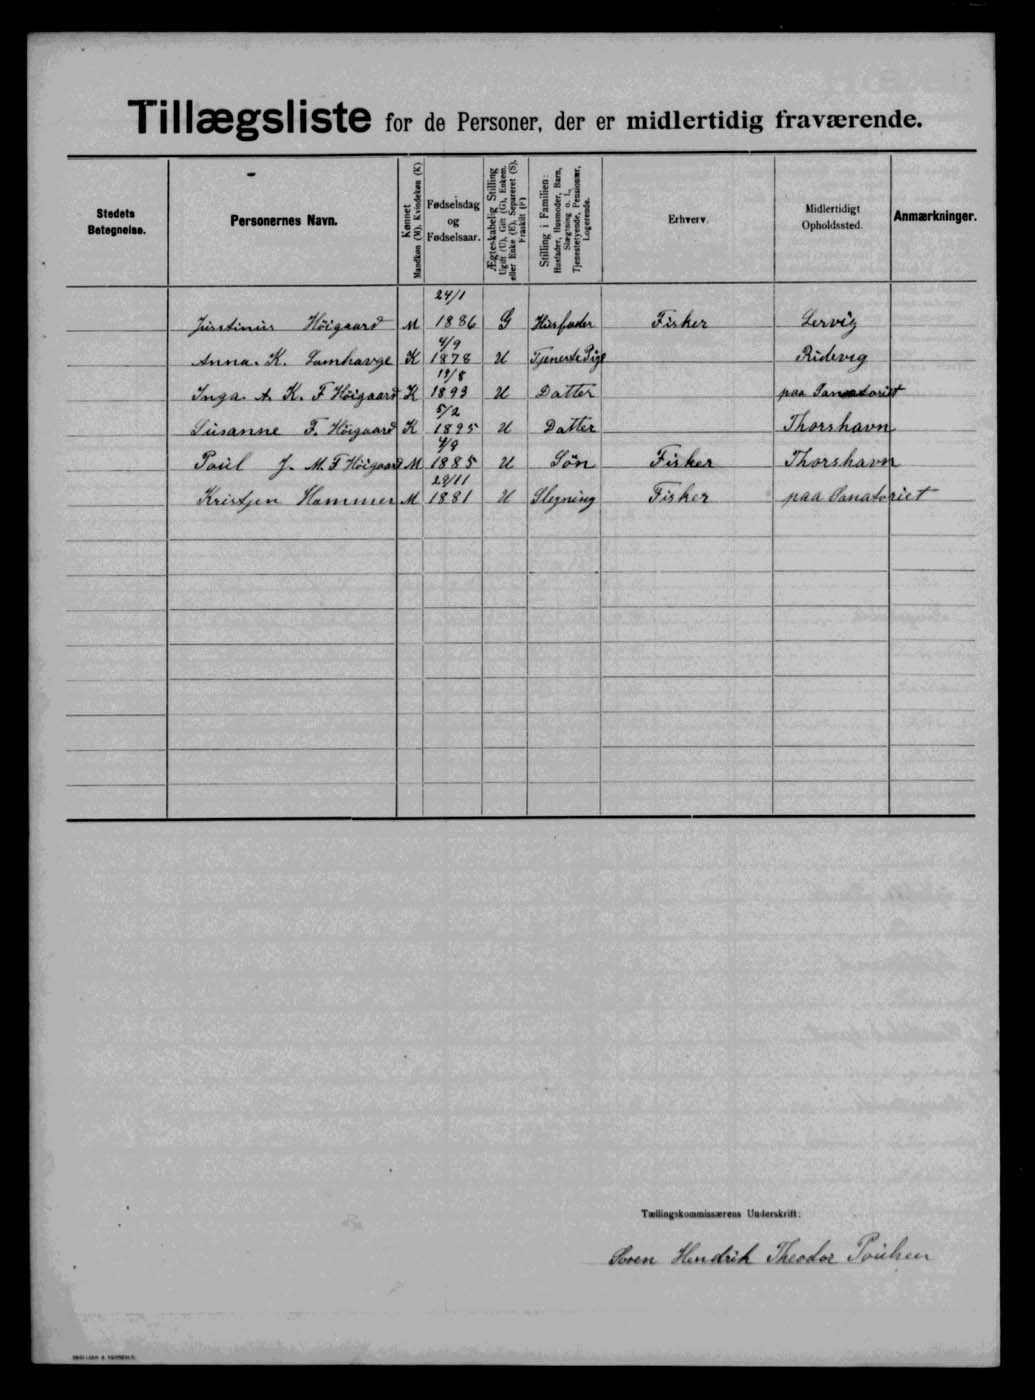 Tillægsliste for de Personer, der er midlertidig fraværende.
Stedets Betegnelse.
Personernes Navn.
Kønnet Mandkøn (M), Kvindekøn (K)
Fødselsdag og Fødselsaar.
Ægteskabelig Stilling Ugift (U), Gift (G), Enkem. eller Enke (E), Separeret (S), Fraskilt (F)
Stilling i Familien: Husfader, Husmoder, Barn, Slægtning o. l., Tjenestetyende, Pensionær, Logerende.
Erhverv.
Midlertidigt Opholdssted.
Anmærkninger.
24/1
Justinus Höigaard M 1886 G Husfader Fisker Lervig
4/9
Anna. K. Lamhavge K 1878 U TjenestePige Ridevig
19/8
Inga. A. K. F Höigaard K 1893 U Datter paa Sanatoriet
5/2
Susanne F. Höigaard K 1895 U Datter Thorshavn
4/9
Poul J. M. F Höigaard M 1885 U Søn Fisker Thorshavn
29/11
Kristjen Hammer M 1881 U Slegning Fisker paa Sanatoriet
Tællingskommissærens Underskrift:
Soren Hendrik Theodor Poulsen